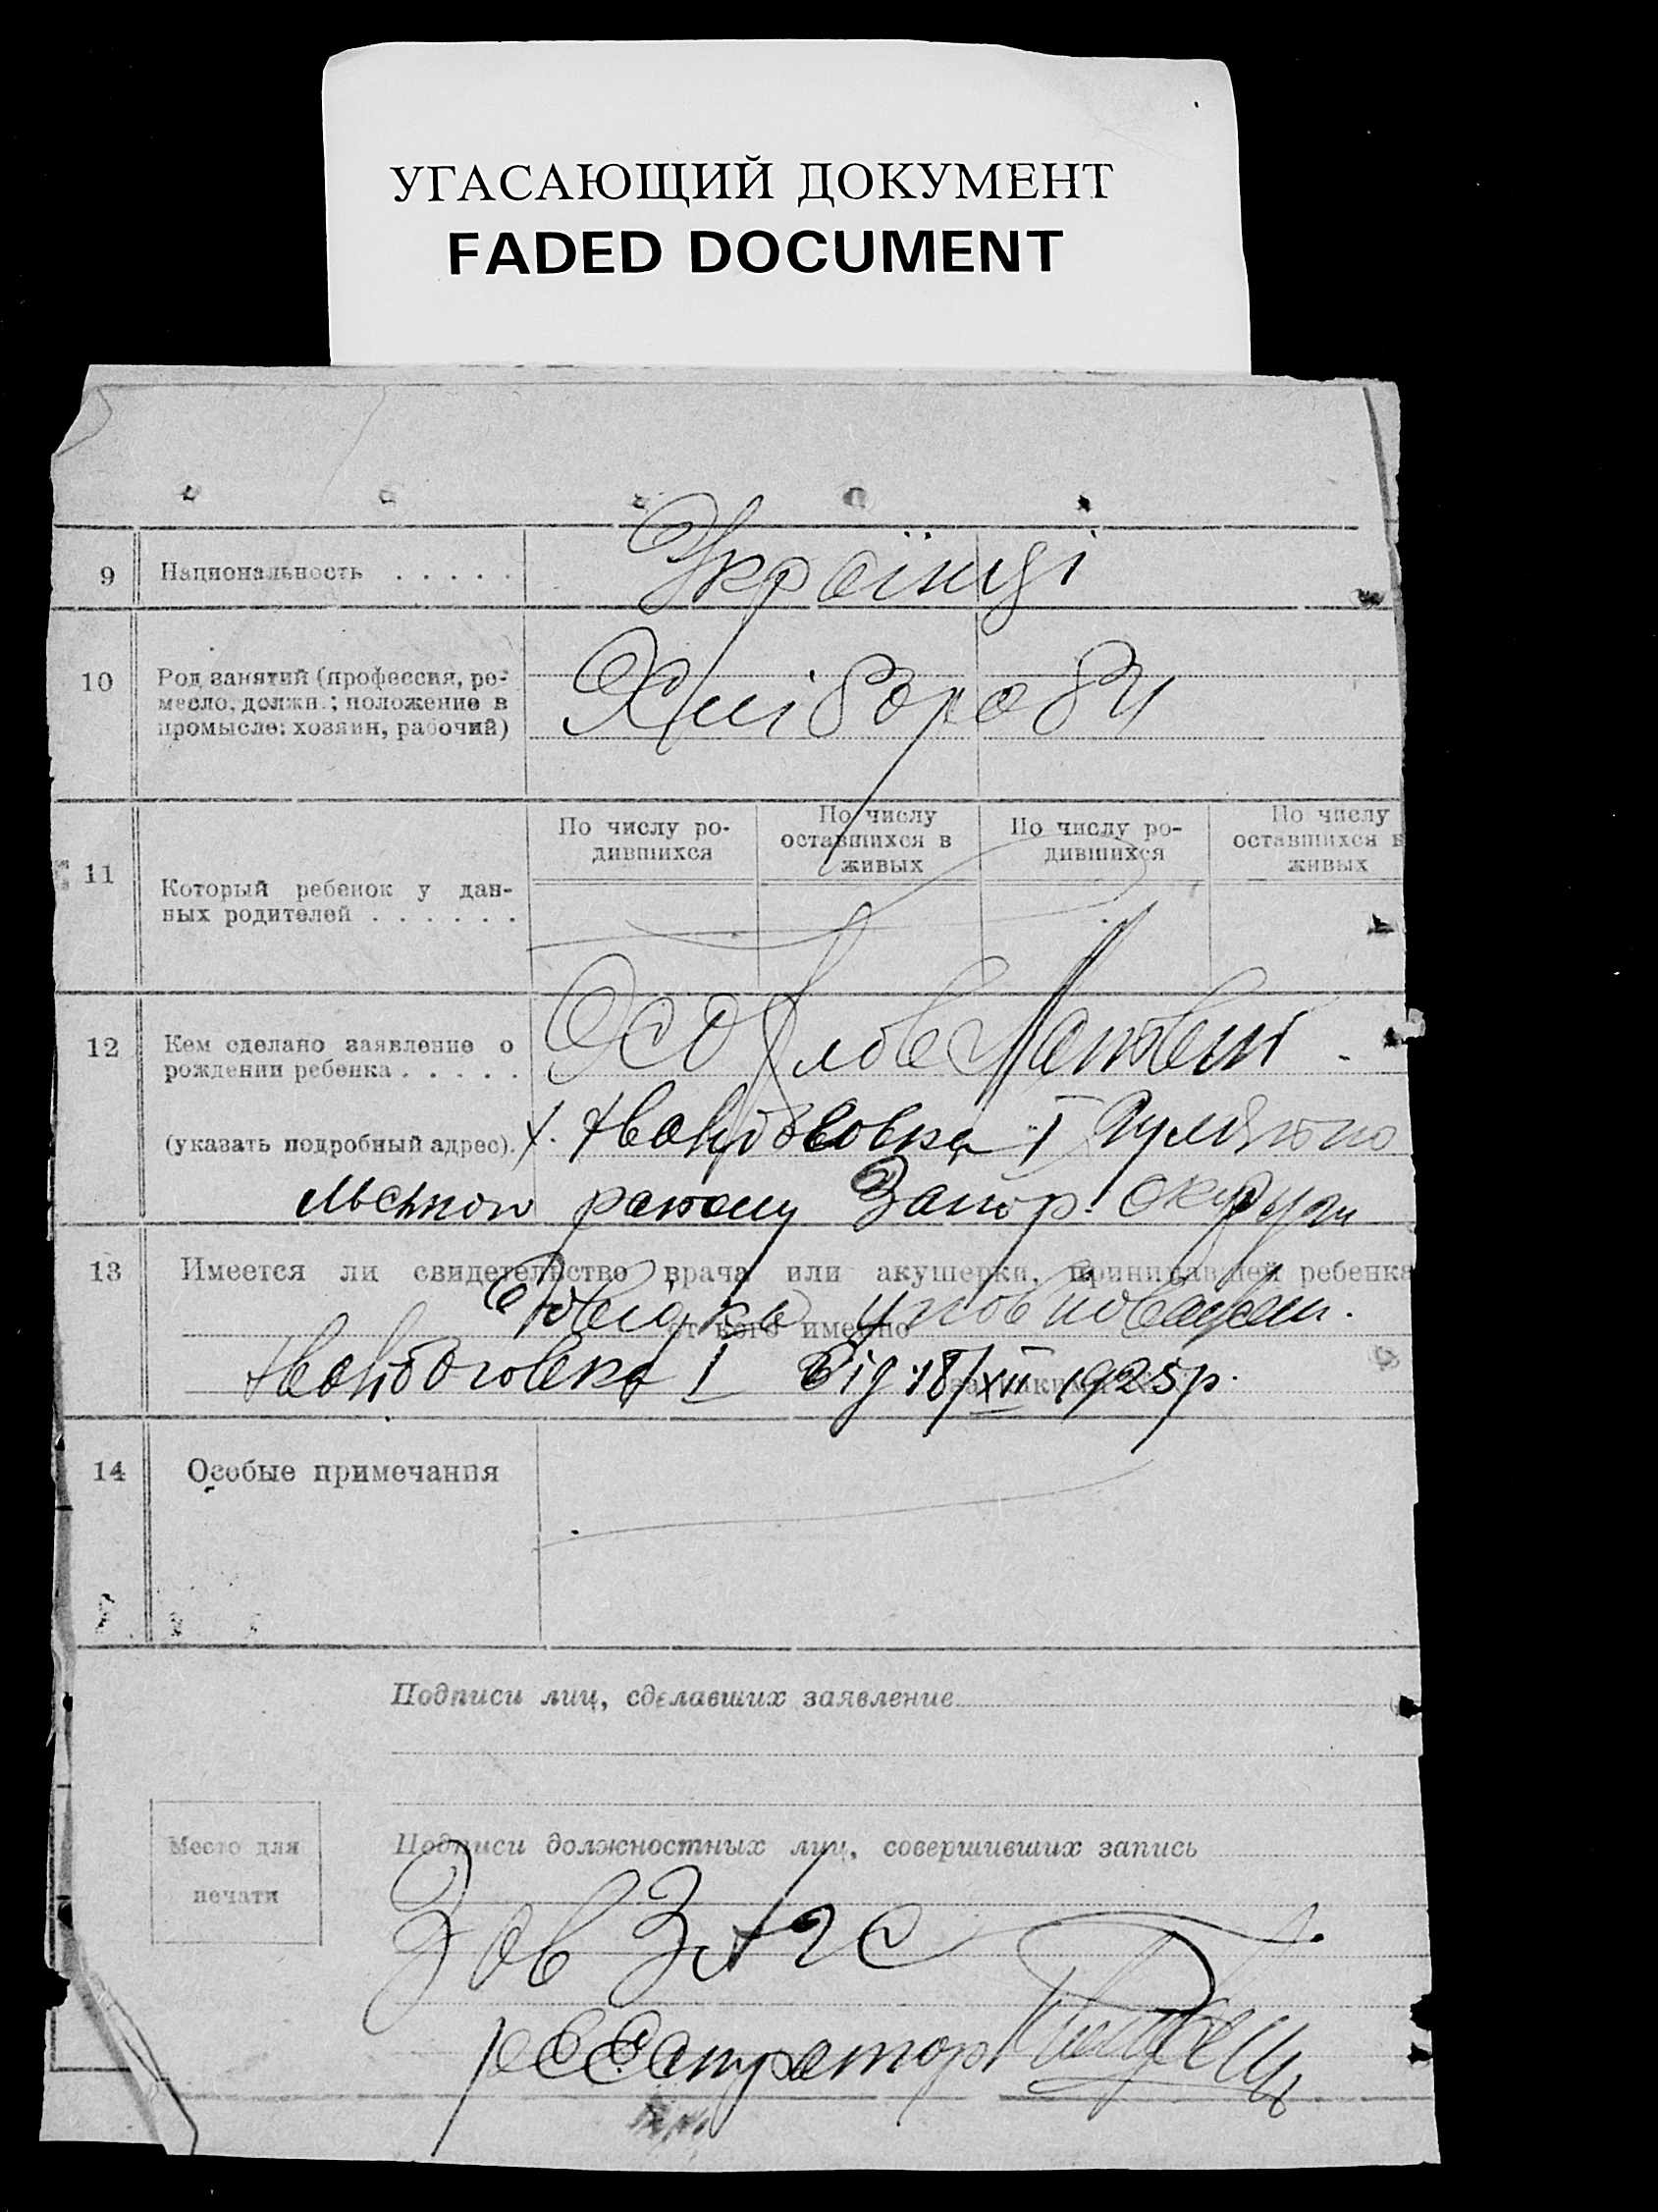 УГАСАЮЩИЙ ДОКУМЕНТ
FADED DOCUMENT
9 Национальность . . . . . Українці
10 Род занятий (профессия, ре-
месло, должн.; положение в
промысле: хозяин, рабочий)
Хліборобы
11 Который ребенок у дан-
ных родителей . . . . . .
По числу ро-
дившихся
По числу
оставшихся в
живых
По числу ро-
дившихся
По числу
оставшихся в
живых
12 Кем сделано заявление о
рождении ребенка . . . . .
(указать подробный адрес).
х. I Гуляйпо
льского району Запор. округи
13 Имеется ли свидетельство врача или акушерки, принимавшей ребенка
от кого именно
I Від 18/XII 1925 р.
14 Особые примечания
Подписи лиц, сделавших заявление
Место для
печати
Подписи должностных лиц, совершивших запись
Зав ЗАГС
реєстратор